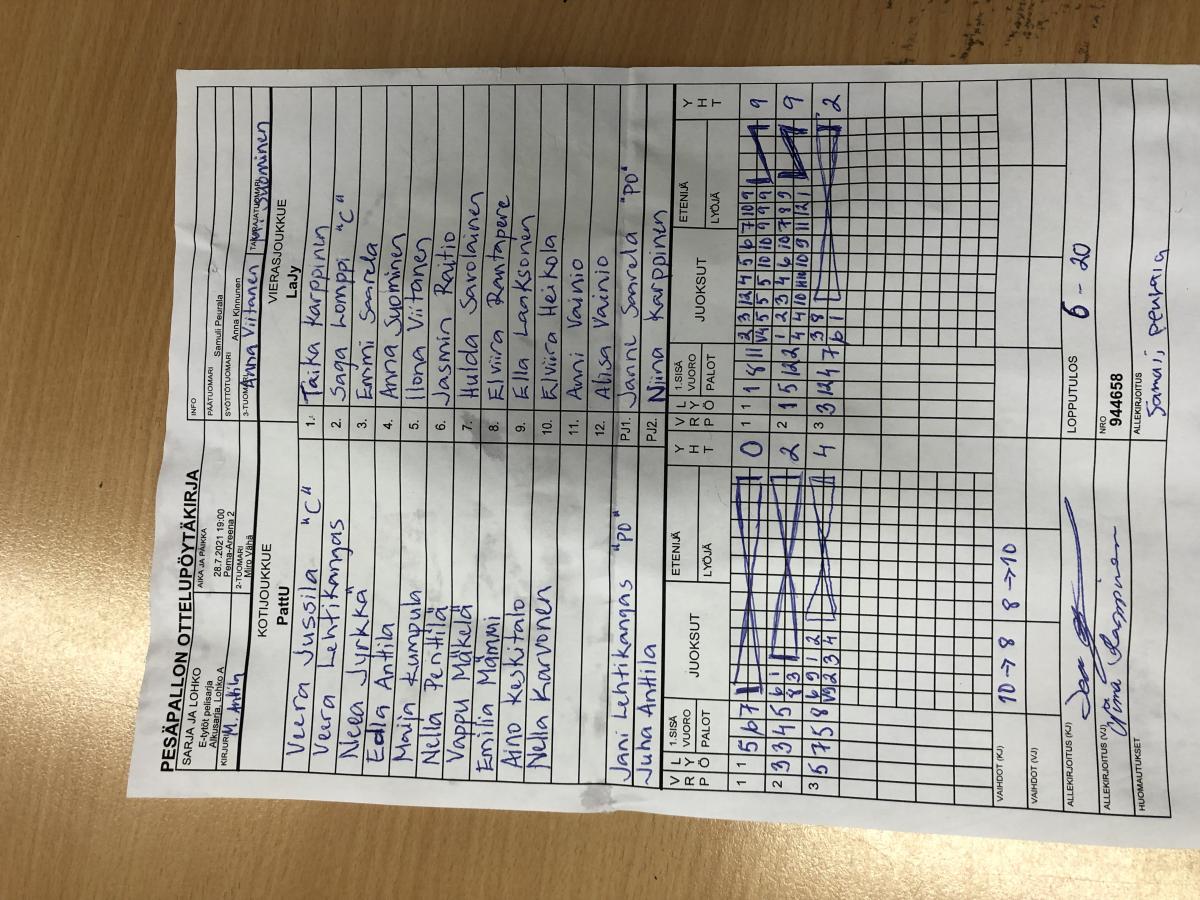 PESÄPALLON OTTELUPÖYTÄKIRJA
SARJA JA LOHKO
E-tytöt pelisarja
Alkusarja, Lohko A
AIKA JA PAIKKA
28.7.2021 19:00
Pema-Areena 2
INFO
PÄÄTUOMARI Samuli Peurala
SYÖTTÖTUOMARI Anna Kinnunen
KIRJURI M. Anttila
2-TUOMARI
Miro Vähä
3-TUOMARI Anna Viitanen
TAKARAJATUOMARI Suominen
KOTIJOUKKUE
PattU
VIERASJOUKKUE
LaJy
Veera Jussila "C" 1. Taika Karppinen
Veera Lehtikangas 2. Saga Lomppi "C"
Neea Jynkkä 3. Emmi Saarela
Edla Anttila 4. Anna Suominen
Maija Kumpula 5. Ilona Viitanen
Nella Penttilä 6. Jasmin Raitio
Vappu Mäkelä 7. Hulda Savolainen
Emilia Mämmi 8. Elviira Rantapere
Aino Keskitalo 9. Ella Laaksonen
Nella Karvonen 10. Elviira Heikola
11. Anni Vainio
12. Alisa Vainio
Jani Lehtikangas "PD" PJ1. Janne Saarela "PD"
Juha Anttila PJ2. Niina Karppinen
V R P L Y Ö 1.SISÄ VUORO PALOT JUOKSUT ETENIJÄ LYÖJÄ Y H T V R P L Y Ö 1.SISÄ VUORO PALOT JUOKSUT ETENIJÄ LYÖJÄ Y H T
1 1 5 6 7 0 1 1 1 8 11 2 3 12 4 5 6 7 10 9 9
2 3 3 4 5 6 1 2 2 1 5 12 2 1 2 3 4 6 10 7 8 9 9
8 3
3 5 7 5 8 6 9 1 2 4 3 3 12 4 7 3 8 2
2 3 4 6 1
VAIHDOT (KJ) 10→8 8→10
VAIHDOT (VJ)
ALLEKIRJOITUS (KJ)
LOPPUTULOS 6 - 20
ALLEKIRJOITUS (VJ)
NRO
944658
HUOMAUTUKSET
ALLEKIRJOITUS
Samuli Peurala